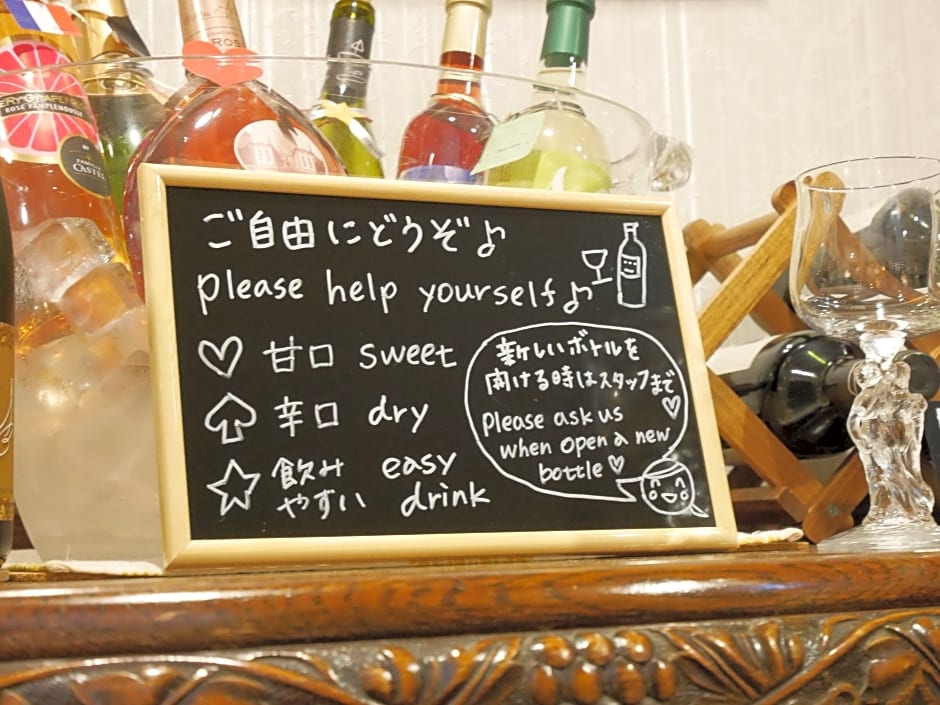 ROSÉ
ROSÉ PAMPLEMOUSSE
ご自由にどうぞ♪
please help yourself♪
♡ 甘口 sweet
♤ 辛口 dry
☆ 飲み easy
やすい drink
新しいボトルを
開ける時はスタッフまで
♡
Please ask us
when open a new
bottle♡